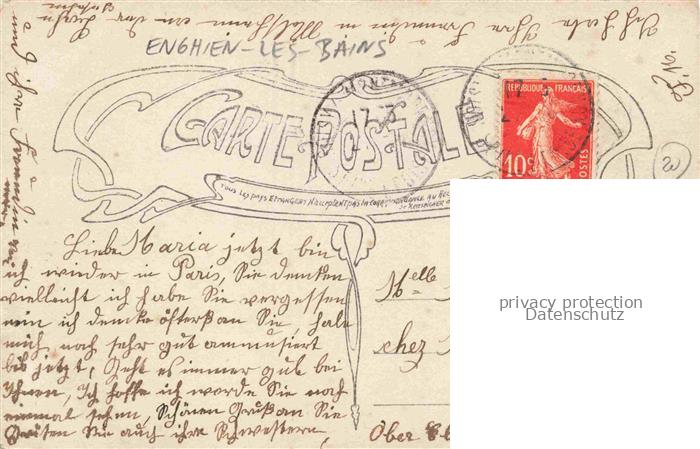 ENGHIEN-LES-BAINS
CARTE POSTALE
TOUS LES PAYS ETRANGERS N'ACCEPTENT PAS LA CORRESPONDANCE AU REC
REPUBLIQUE FRANÇAISE
10 c
POSTES
Liebe Maria jetzt bin
ich wieder in Paris, Sie denken
vielleicht ich habe Sie vergessen
nein ich denke öfters an Sie, habe
mich noch sehr gut ammusiert
bis jetzt, Geht es immer gut bei
Ihnen, Ich hoffe ich werde Sie noch
einmal sehen, Schönen Gruß an Sie
Grüßen Sie auch ihre Schwestern
und ihre Freundin
Ich habe Ihre Freundin in an der
Melle
chez
Ober
20
privacy protection
Datenschutz